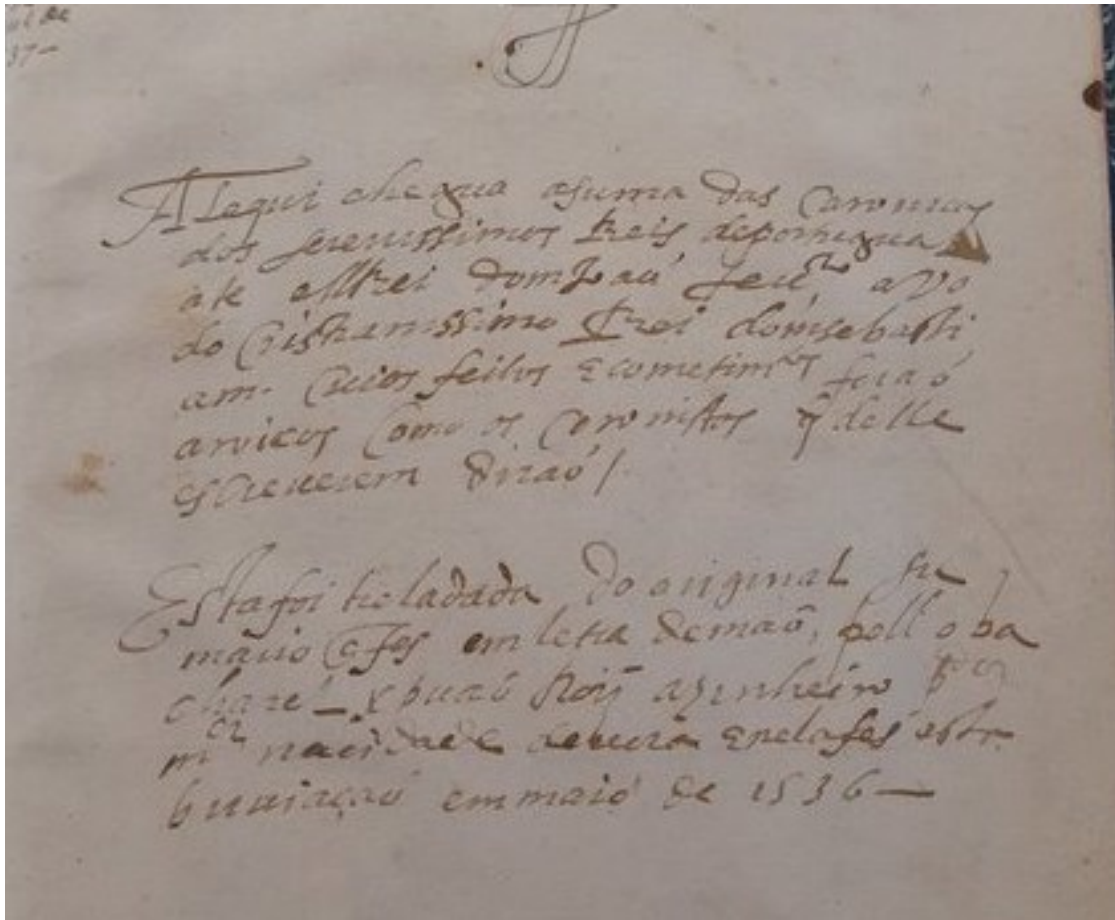 de
37 –
Atequi chegua asuma das Caronicas
dos serenissimos Reis deportugua
ate ellRei dom Joaó o avo
do Cristianissimo Rei dom sebasti
am. Cuios feitos & cometimtos seraó
Como os Caronistas q̃ delle
escreuerem diraó /
Esta foi treladada do original su
mario q̃ fes em letra demaõ, pello ba
charel – xpuaõ Roiz azinheiro
natural da cidade deuora &
em maió de 1536 —